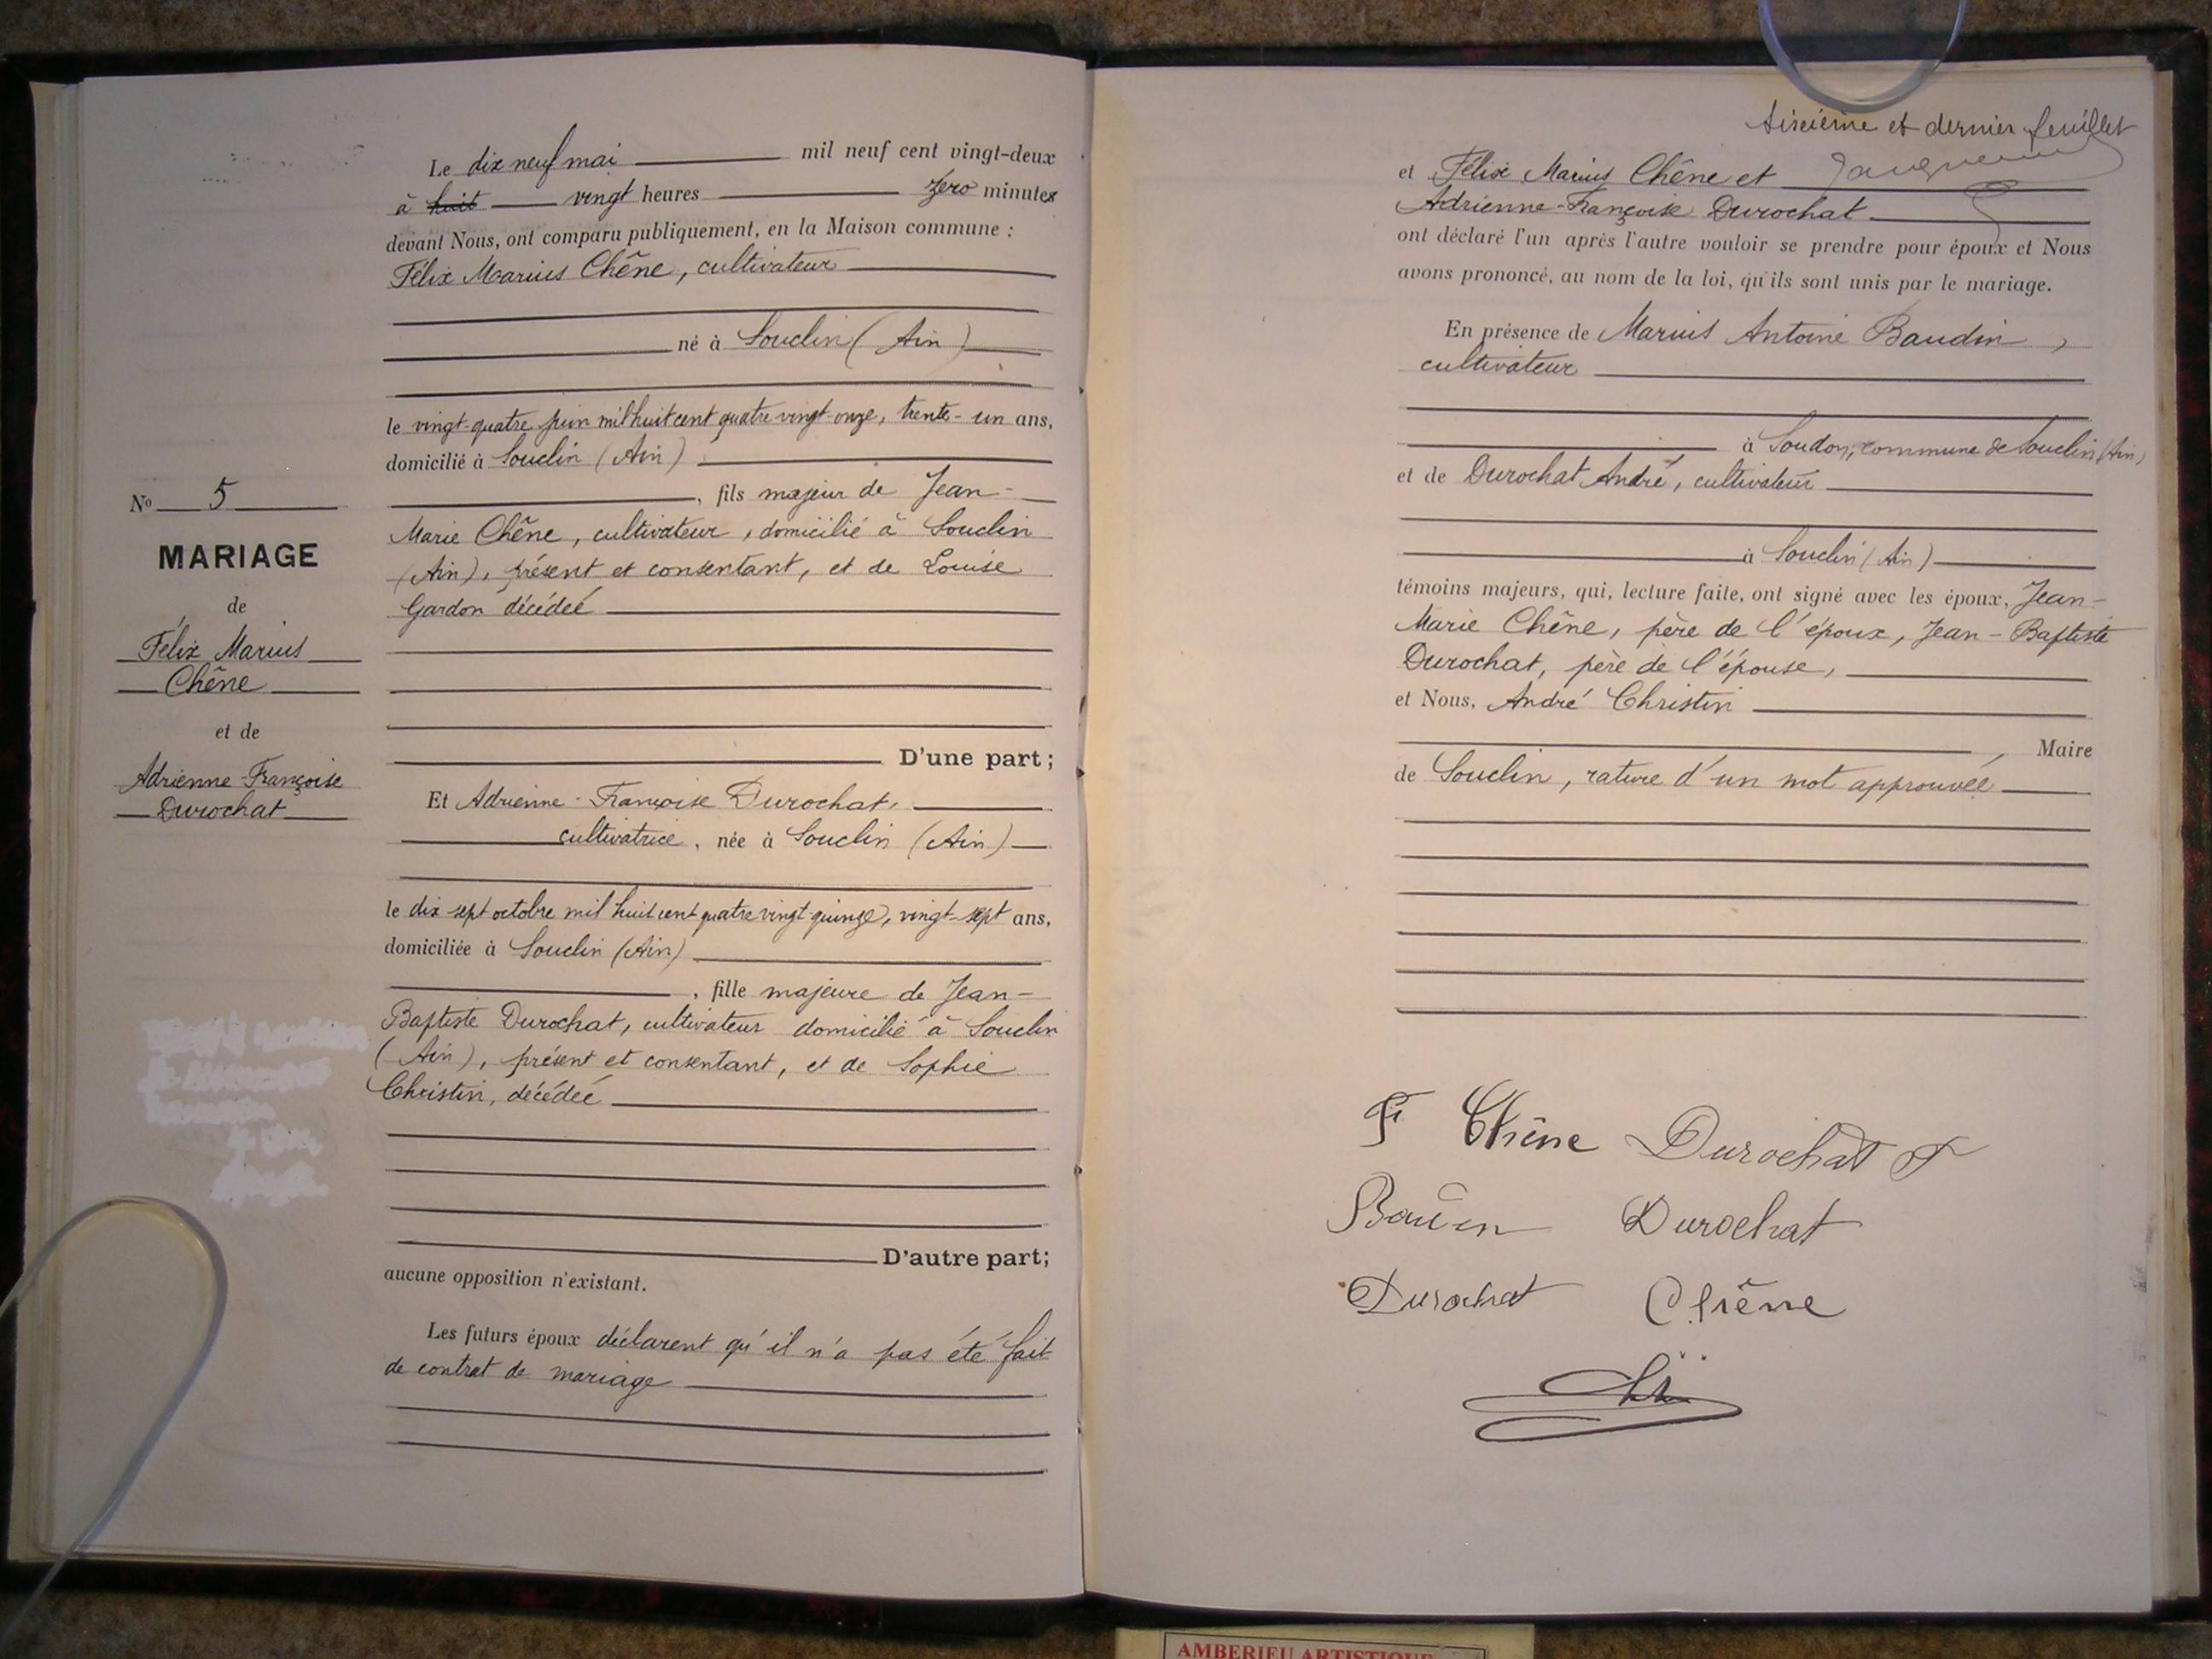 No 5
MARIAGE
de
Félix Marius
Chêne
et de
Adrienne-Françoise
Durochat
Le dix neuf mai mil neuf cent vingt-deux
à huit vingt heures zero minutes
devant Nous, ont comparu publiquement, en la Maison commune :
Félix Marius Chêne, cultivateur
né à Souclin (Ain)
le vingt-quatre juin mil huit cent quatre vingt-onze, trente-un ans,
domicilié à Souclin (Ain)
, fils majeur de Jean-
Marie Chêne, cultivateur, domicilié à Souclin
(Ain), présent et consentant, et de Louise
Gardon décédée
D'une part;
Et Adrienne-Françoise Durochat,
cultivatrice, née à Souclin (Ain)
le dix-sept octobre mil huit cent quatre vingt-quinze, vingt-sept ans,
domiciliée à Souclin (Ain)
, fille majeure de Jean-
Baptiste Durochat, cultivateur domicilié à Souclin
(Ain), présent et consentant, et de Sophie
Christin, décédée
D'autre part;
aucune opposition n'existant.
Les futurs époux déclarent qu'il n'a pas été fait
de contrat de mariage
et dernier feuillet
et Félix Marius Chêne et
Adrienne-Françoise Durochat
ont déclaré l'un après l'autre vouloir se prendre pour époux et Nous
avons prononcé, au nom de la loi, qu'ils sont unis par le mariage.
En présence de Marius Antoine Baudin,
cultivateur
à Soudon, commune de Souclin (Ain)
et de Durochat André, cultivateur
à Souclin (Ain)
témoins majeurs, qui, lecture faite, ont signé avec les époux, Jean-
Marie Chêne, père de l'époux, Jean-Baptiste
Durochat, père de l'épouse,
et Nous, André Christin
, Maire
de Souclin, rature d'un mot approuvée
F Chêne Durochat F
Durochat
Durochat Chêne
AMBERIEU ARTISTIQUE